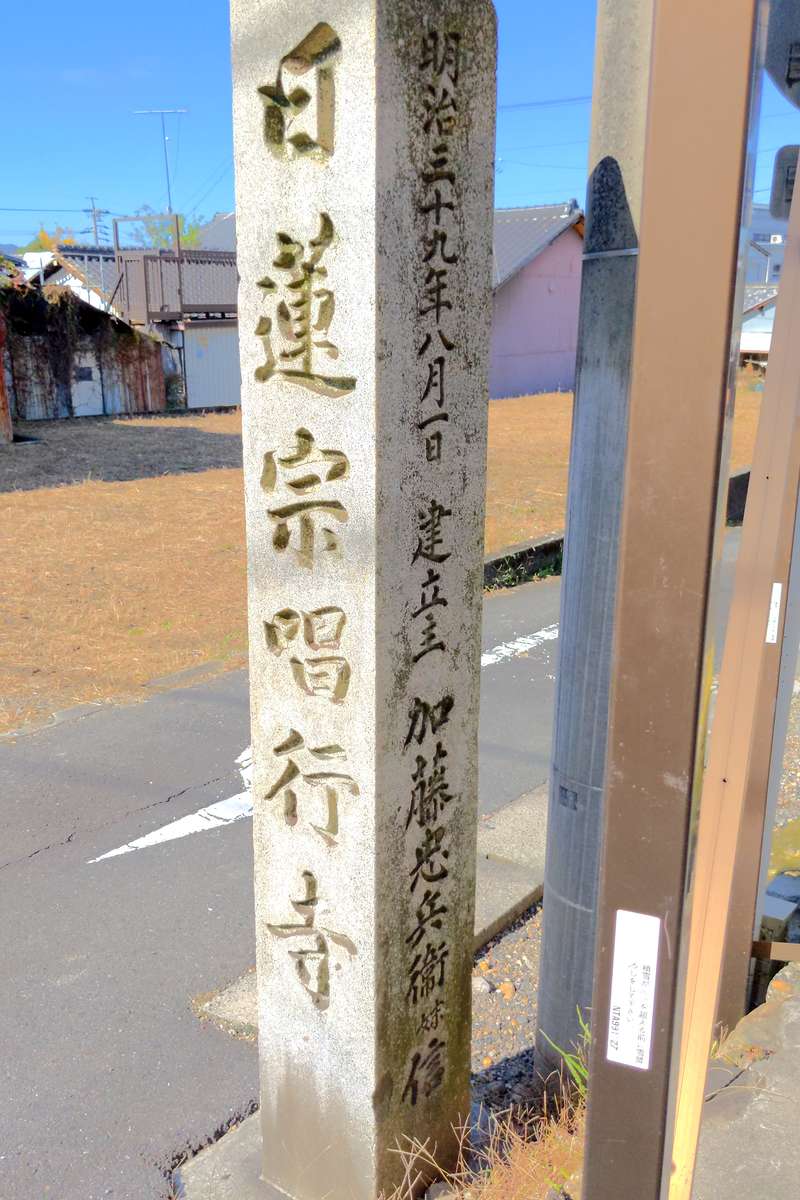 日蓮宗唱行寺
明治三十九年八月一日 建立主 加藤忠兵衛 妹 信
NTA991